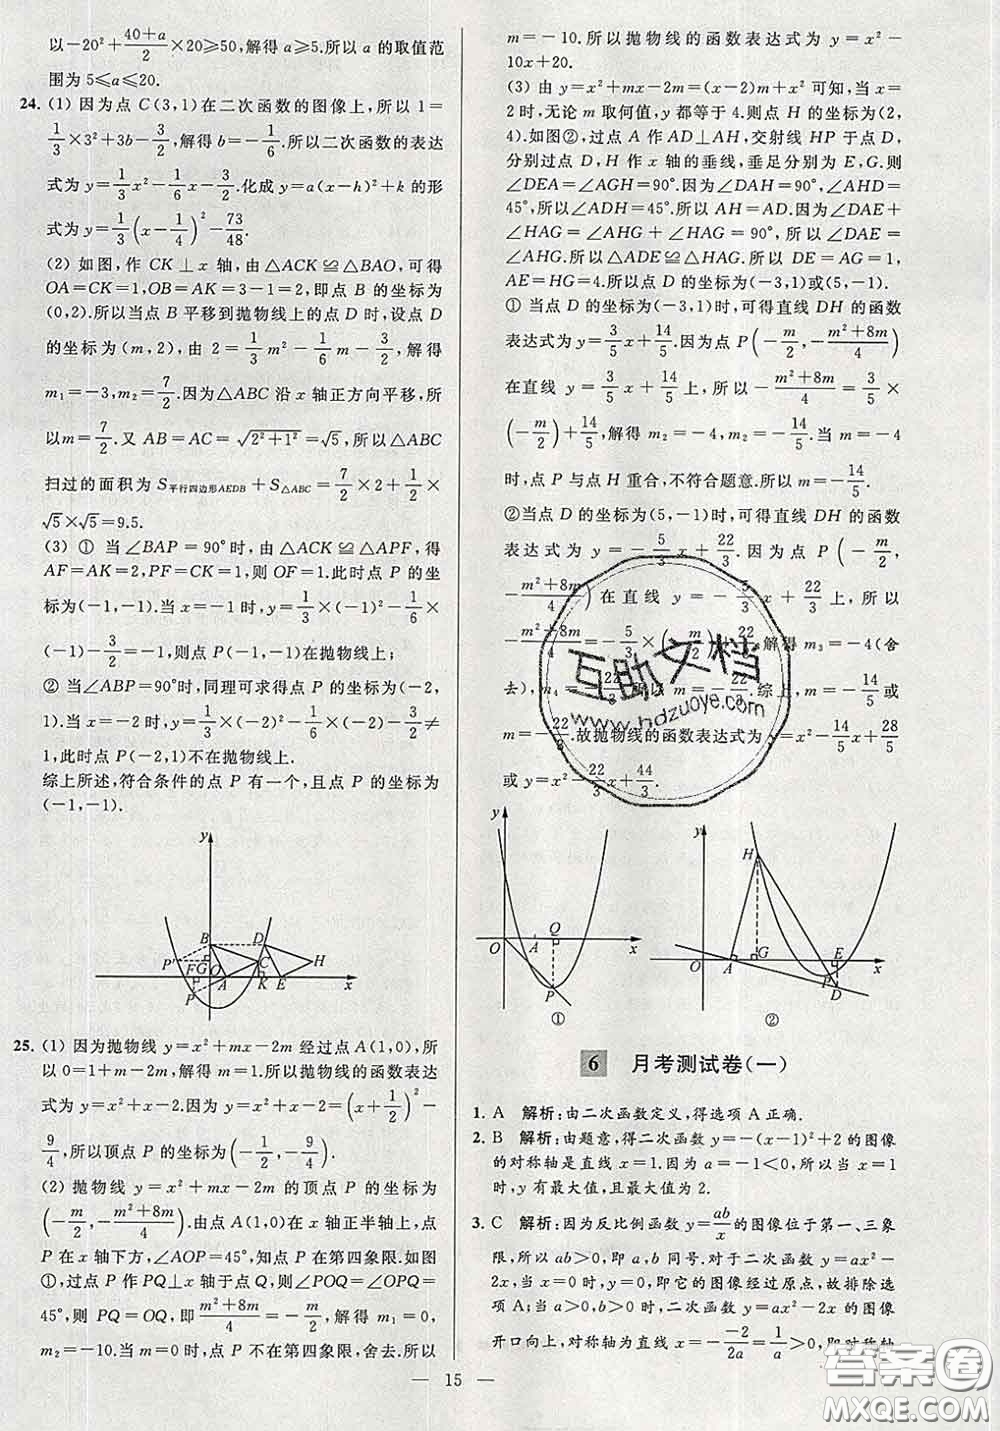 以-20²+(40+a)/2×20≥50,解得a≥5.所以a的取值范
围为5≤a≤20.
24. (1) 因为点C(3,1)在二次函数的图像上,所以1=
1/3×3²+3b-3/2,解得b=-1/6.所以二次函数的表达
式为y=1/3x²-1/6x-3/2.化成y=a(x-h)²+k的形
式为y=1/3(x-1/4)²-73/48.
(2) 如图,作CK⊥x轴,由△ACK≌△BAO,可得
OA=CK=1,OB=AK=3-1=2,即点B的坐标为
(0,2).所以当点B平移到抛物线上的点D时,设点D
的坐标为(m,2),由2=1/3m²-1/6m-3/2,解得
m₁=-3,m₂=7/2.因为△ABC沿x轴正方向平移,所
以m=7/2.又AB=AC=√(2²+1²)=√5,所以△ABC
扫过的面积为S平行四边形AEDB+S△ABC=7/2×2+1/2×
√5×√5=9.5.
(3) ① 当∠BAP=90°时,由△ACK≌△APF,得
AF=AK=2,PF=CK=1,则OF=1.此时点P的坐
标为(-1,-1).当x=-1时,y=1/3×(-1)²-1/6×
(-1)-3/2=-1,则点P(-1,-1)在抛物线上;
② 当∠ABP=90°时,同理可求得点P的坐标为(-2,
1).当x=-2时,y=1/3×(-2)²-1/6×(-2)-3/2≠
1,此时点P(-2,1)不在抛物线上.
综上所述,符合条件的点P有一个,且点P的坐标为
(-1,-1).
y
B D
P' G C H
F O A K E x
P
25. (1) 因为抛物线y=x²+mx-2m经过点A(1,0),所
以0=1+m-2m,解得m=1.所以抛物线的函数表达
式为y=x²+x-2.因为y=x²+x-2=(x+1/2)²-
9/4,所以顶点P的坐标为(-1/2,-9/4).
(2) 抛物线y=x²+mx-2m的顶点P的坐标为
(-m/2,-(m²+8m)/4).由点A(1,0)在x轴正半轴上,点
P在x轴下方,∠AOP=45°,知点P在第四象限.如图
①,过点P作PQ⊥x轴于点Q,则∠POQ=∠OPQ=
45°,则PQ=OQ,即(m²+8m)/4=-m/2,解得m₁=0,
m₂=-10.当m=0时,点P不在第四象限,舍去.所以
m=-10.所以抛物线的函数表达式为y=x²-
10x+20.
(3) 由y=x²+mx-2m=(x-2)m+x²可知,当x=
2时,无论m取何值,y都等于4.则点H的坐标为(2,
4).如图②,过点A作AD⊥AH,交射线HP于点D,
分别过点D,H作x轴的垂线,垂足分别为E,G.则
∠DEA=∠AGH=90°.因为∠DAH=90°,∠AHD=
45°,所以∠ADH=45°.所以AH=AD.因为∠DAE+
∠HAG=∠AHG+∠HAG=90°,所以∠DAE=
∠AHG.所以△ADE≌△HAG.所以DE=AG=1,
AE=HG=4.所以点D的坐标为(-3,1)或(5,-1).
① 当点D的坐标为(-3,1)时,可得直线DH的函数
表达式为y=3/5x+14/5.因为点P(-m/2,-(m²+8m)/4)
在直线y=3/5x+14/5上,所以-(m²+8m)/4=3/5×
(-m/2)+14/5,解得m₂=-4,m₂=-14/5.当m=-4
时,点P与点H重合,不符合题意.所以m=-14/5.
②当点D的坐标为(5,-1)时,可得直线DH的函数
表达式为y=-5/3x+22/3.因为点P(-m/2,
-(m²+8m)/4)在直线y=-5/3x+22/3上,所以
-(m²+8m)/4=-5/3×(-m/2)+22/3,解得m₃=-4(舍
去),m₄=-22/3.所以m=-22/3.综上,m=-14/5或
m=-22/3.故抛物线的函数表达式为y=x²-14/5x+28/5
或y=x²-22/3x+44/3.
互助文档
www.hdzuoye.com
y
O A Q x
P
①
y
H
O A G E x
P D
②
6 月考测试卷(一)
1. A 解析:由二次函数定义,得选项A正确.
2. B 解析:由题意,得二次函数y=-(x-1)²+2的图像
的对称轴是直线x=1.因为a=-1<0,所以当x=1
时,y有最大值,且最大值为2.
3. C 解析:因为反比例函数y=ab/x的图像位于第一、三象
限,所以ab>0,即a,b同号.对于二次函数y=ax²-
2x,当x=0时,y=0,即它的图像经过原点,故排除选
项A;当a>0,b>0时,二次函数y=ax²-2x的图像
开口向上,对称轴为直线x=-(-2)/2a=1/a>0,即对称轴
— 15 —
答案圈
MXQE.COM